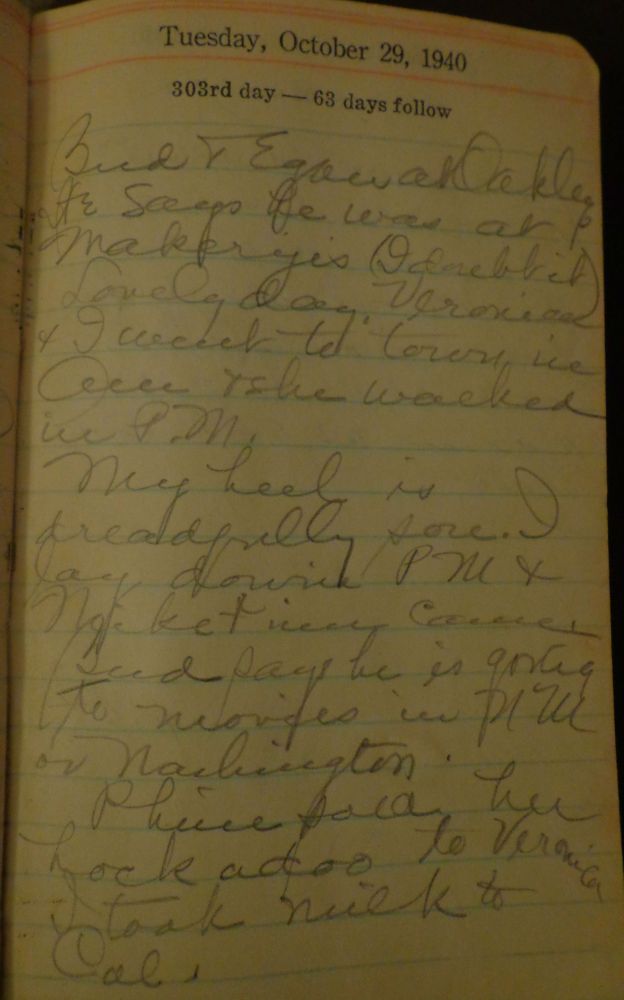 Tuesday, October 29, 1940
303rd day — 63 days follow
Bud & Egan at Oakley
He says he was at
(I doubt it)
Lovely day. Veronica
& I went to town in
& she walked
in P.M.
My heel is
dreadfully sore. I
lay down in P M &
came.
Bud says he is going
to movies in N M
or Washington.
sold her
to Veronica
I took milk to
Cal.